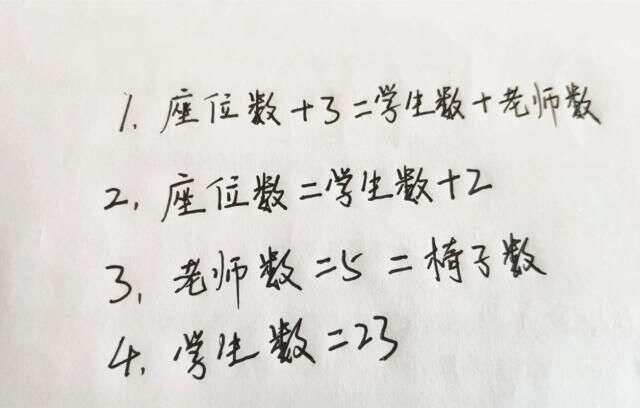 1. 座位数+3=学生数+老师数
2. 座位数=学生数+2
3. 老师数=5=椅子数
4. 学生数=23